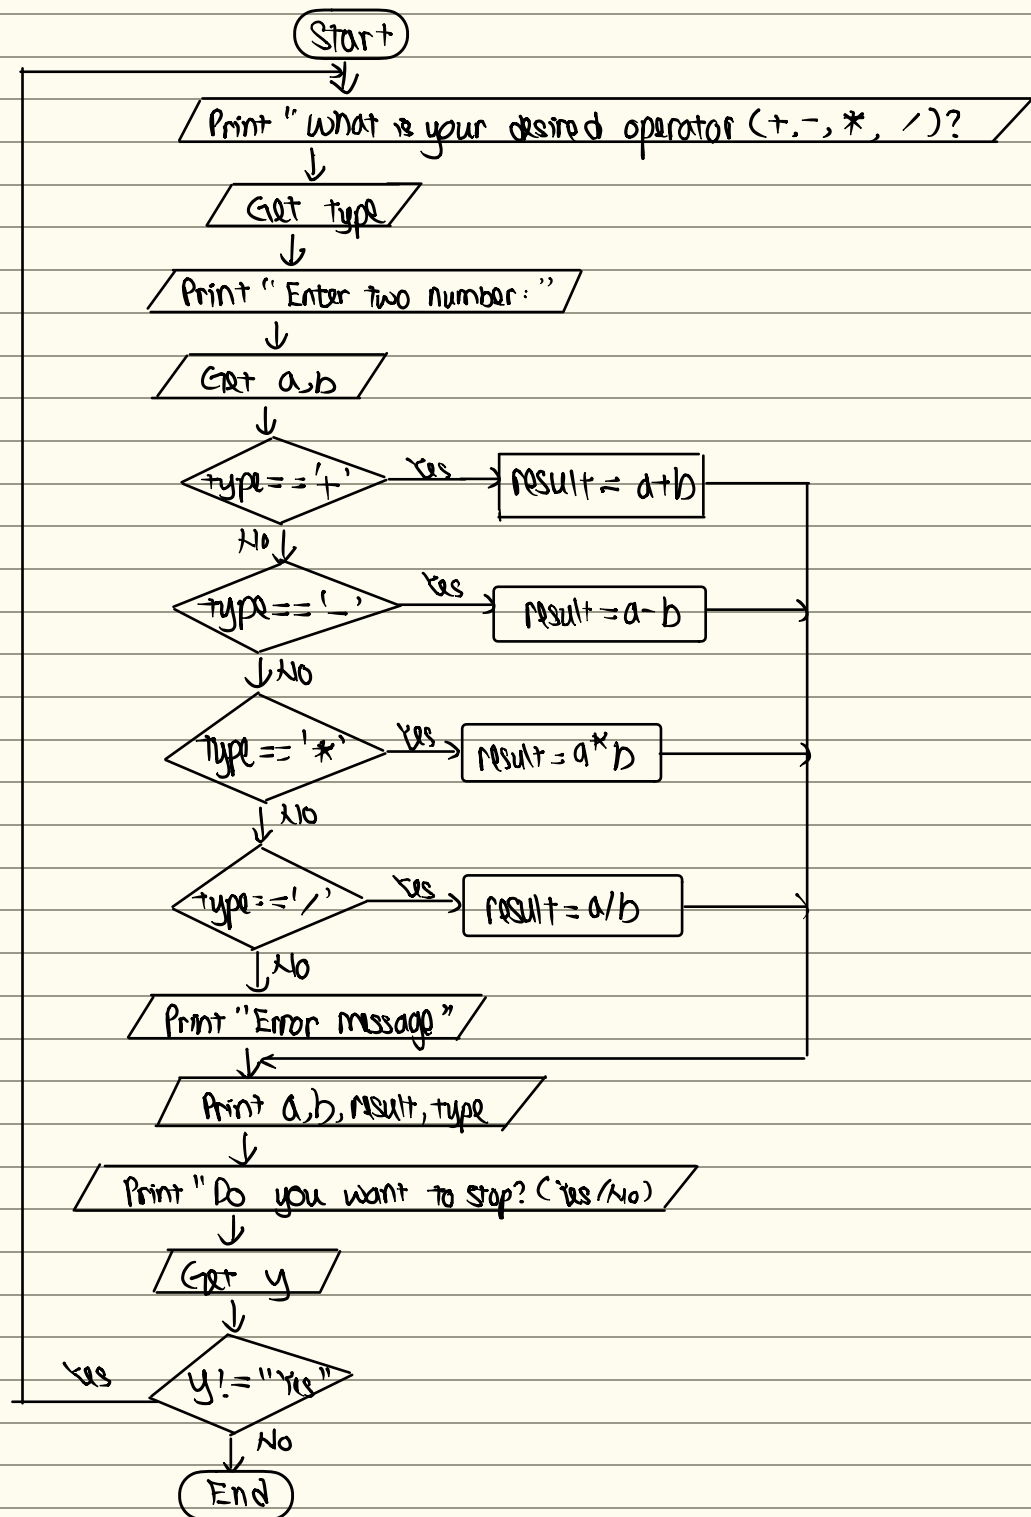 Start
Print "What is your desired operator (+,-,*, /)?
Get type
Print "Enter two number:"
Get a,b
type=='+' Yes result = a+b
No
type=='-' Yes result = a-b
No
type=='*' Yes result = a*b
No
type=='/' Yes result = a/b
No
Print "Error message"
Print a,b,result,type
Print "Do you want to stop? (Yes/No)
Get y
Yes y!="Yes"
No
End